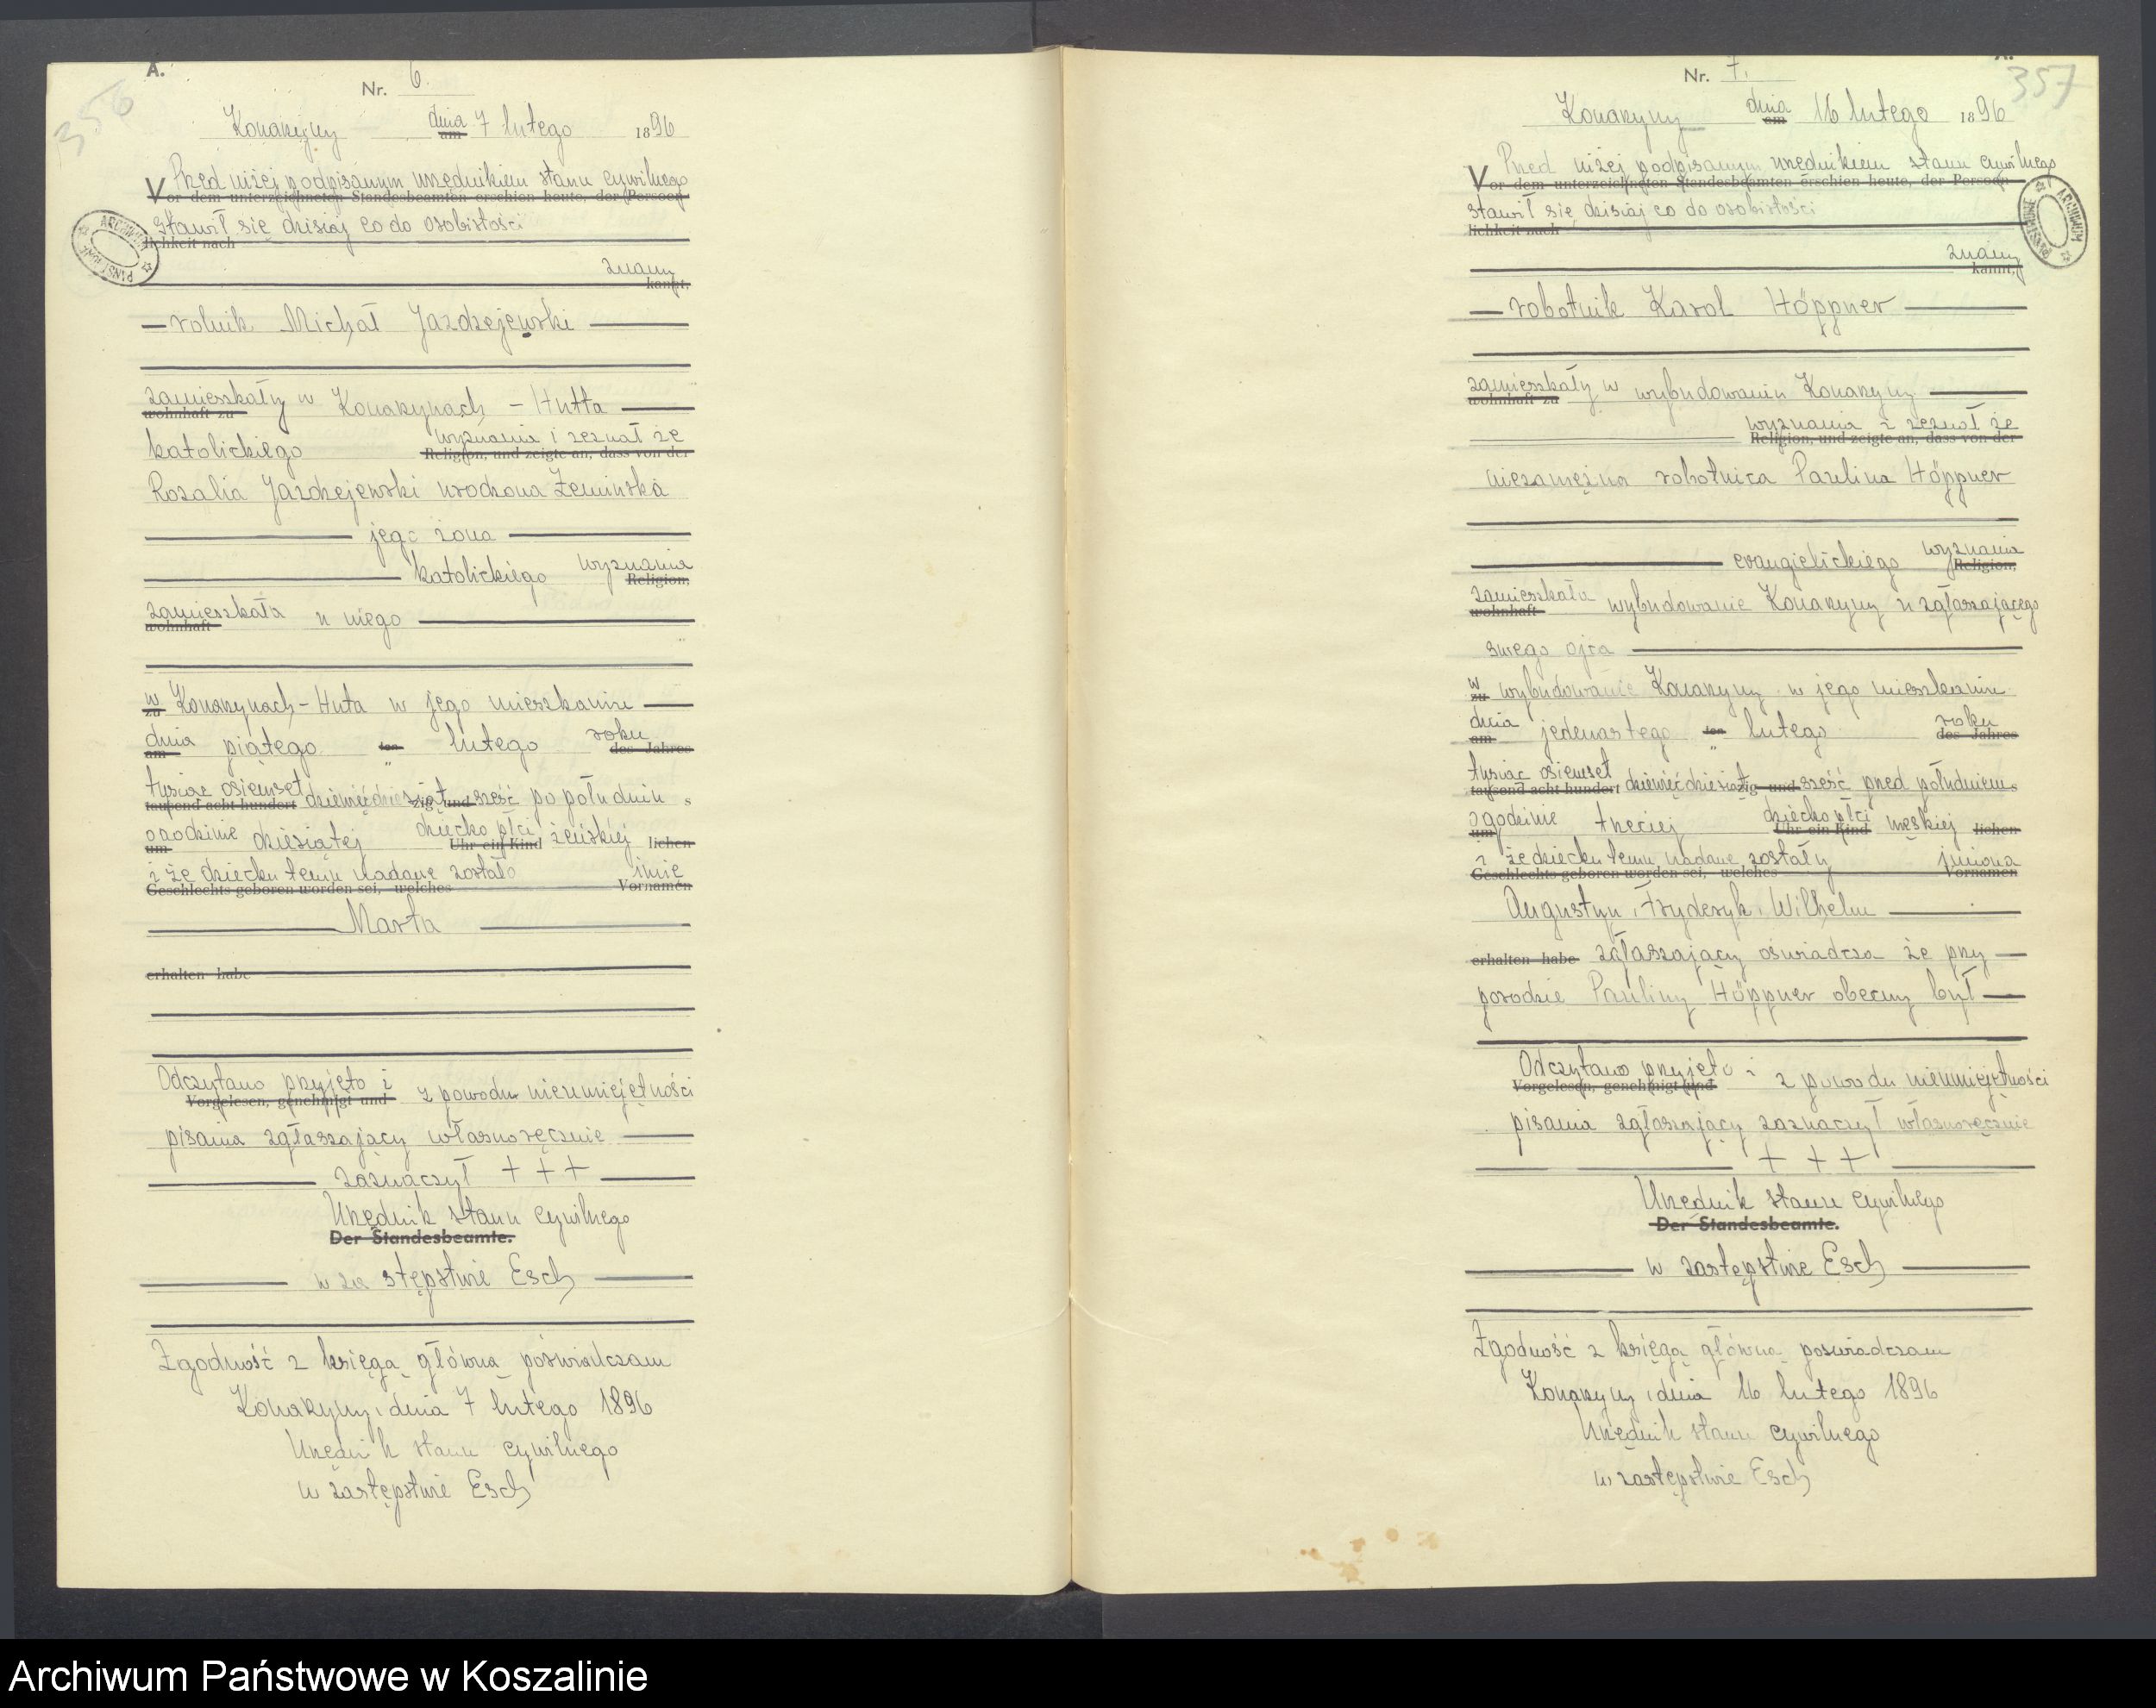 356
A.
Nr. 6.
Konarzyny dnia am 7 lutego 1896
Przed niżej podpisanym urzędnikiem stanu cywilnego
Vor dem unterzeichneten Standesbeamten erschien heute, der Person-
stawił się dzisiaj co do osobistości
lichkeit nach
znany
kannt,
rolnik Michał Jazdzejewski
zamieszkały w Konarzynach - Hutta
wohnhaft zu
katolickiego wyznania i zeznał że
Religion, und zeigte an, dass von der
Rozalia Jazdzejewski urodzona Żemińska
jego żona
katolickiego wyznania
Religion,
zamieszkała u niego
wohnhaft
w Konarzynach - Huta w jego mieszkaniu
zu
dnia piątego ten lutego roku
am des Jahres
tysiąc osiemset dziewięćdziesiąt sześć po południu s
tausend acht hundert zig und
o godzinie dziesiątej dziecko płci żeńskiej lichen
um Uhr ein Kind
i że dziecku temu nadane zostało imię
Geschlechts geboren worden sei, welches Vornamen
Marta
erhalten habe
Odczytano przyjęto i z powodu nieumiejętności
Vorgelesen, genehmigt und
pisania zgłaszający własnoręcznie
zaznaczył + + +
Urzędnik stanu cywilnego
Der Standesbeamte.
w zastępstwie Esch
Zgodność z księgą główną poświadczam
Konarzyny, dnia 7 lutego 1896
Urzędnik stanu cywilnego
w zastępstwie Esch
ARCHIWUM PAŃSTWOWE
A.
357
Nr. 7.
Konarzyny dnia am 16 lutego 1896
Przed niżej podpisanym urzędnikiem stanu cywilnego
Vor dem unterzeichneten Standesbeamten erschien heute, der Person-
stawił się dzisiaj co do osobistości
lichkeit nach
znany
kannt,
robotnik Karol Höppner
zamieszkały w wybudowaniu Konarzyny
wohnhaft zu
wyznania i zeznał że
Religion, und zeigte an, dass von der
niezamężna robotnica Paulina Höppner
evangielickiego wyznania
Religion,
zamieszkała wybudowanie Konarzyny u zgłaszającego
wohnhaft
swego ojca
w wybudowanie Konarzyny w jego mieszkaniu
zu
dnia jedenastego ten lutego roku
am des Jahres
tysiąc osiemset dziewięćdziesiąt sześć przed południem s
tausend acht hundert zig und
o godzinie trzeciej dziecko płci męskiej lichen
um Uhr ein Kind
i że dziecku temu nadane zostały imiona
Geschlechts geboren worden sei, welches Vornamen
Augustyn, Fryderyk, Wilhelm
erhalten habe zgłaszający oświadcza że przy
porodzie Pauliny Höppner obecny był
Odczytano przyjęto i z powodu nieumiejętności
Vorgelesen, genehmigt und
pisania zgłaszający zaznaczył własnoręcznie
+ + +
Urzędnik stanu cywilnego
Der Standesbeamte.
w zastępstwie Esch
Zgodność z księgą główną poświadczam
Konarzyny, dnia 16 lutego 1896
Urzędnik stanu cywilnego
w zastępstwie Esch
ARCHIWUM PAŃSTWOWE
Archiwum Państwowe w Koszalinie